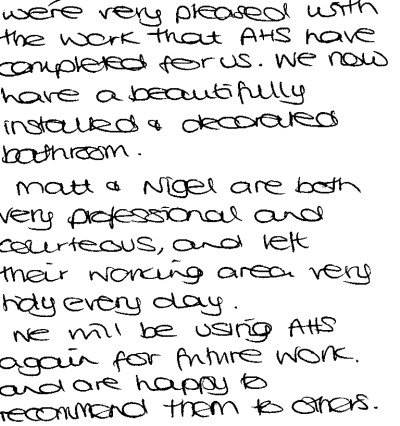 were very pleased with
the work that AHS have
completed for us. We now
have a beautifully
installed & decorated
bathroom.
Matt & Nigel are both
very professional and
courteous, and left
their working area very
tidy every day.
We will be using AHS
again for future work.
and are happy to
recommend them to others.